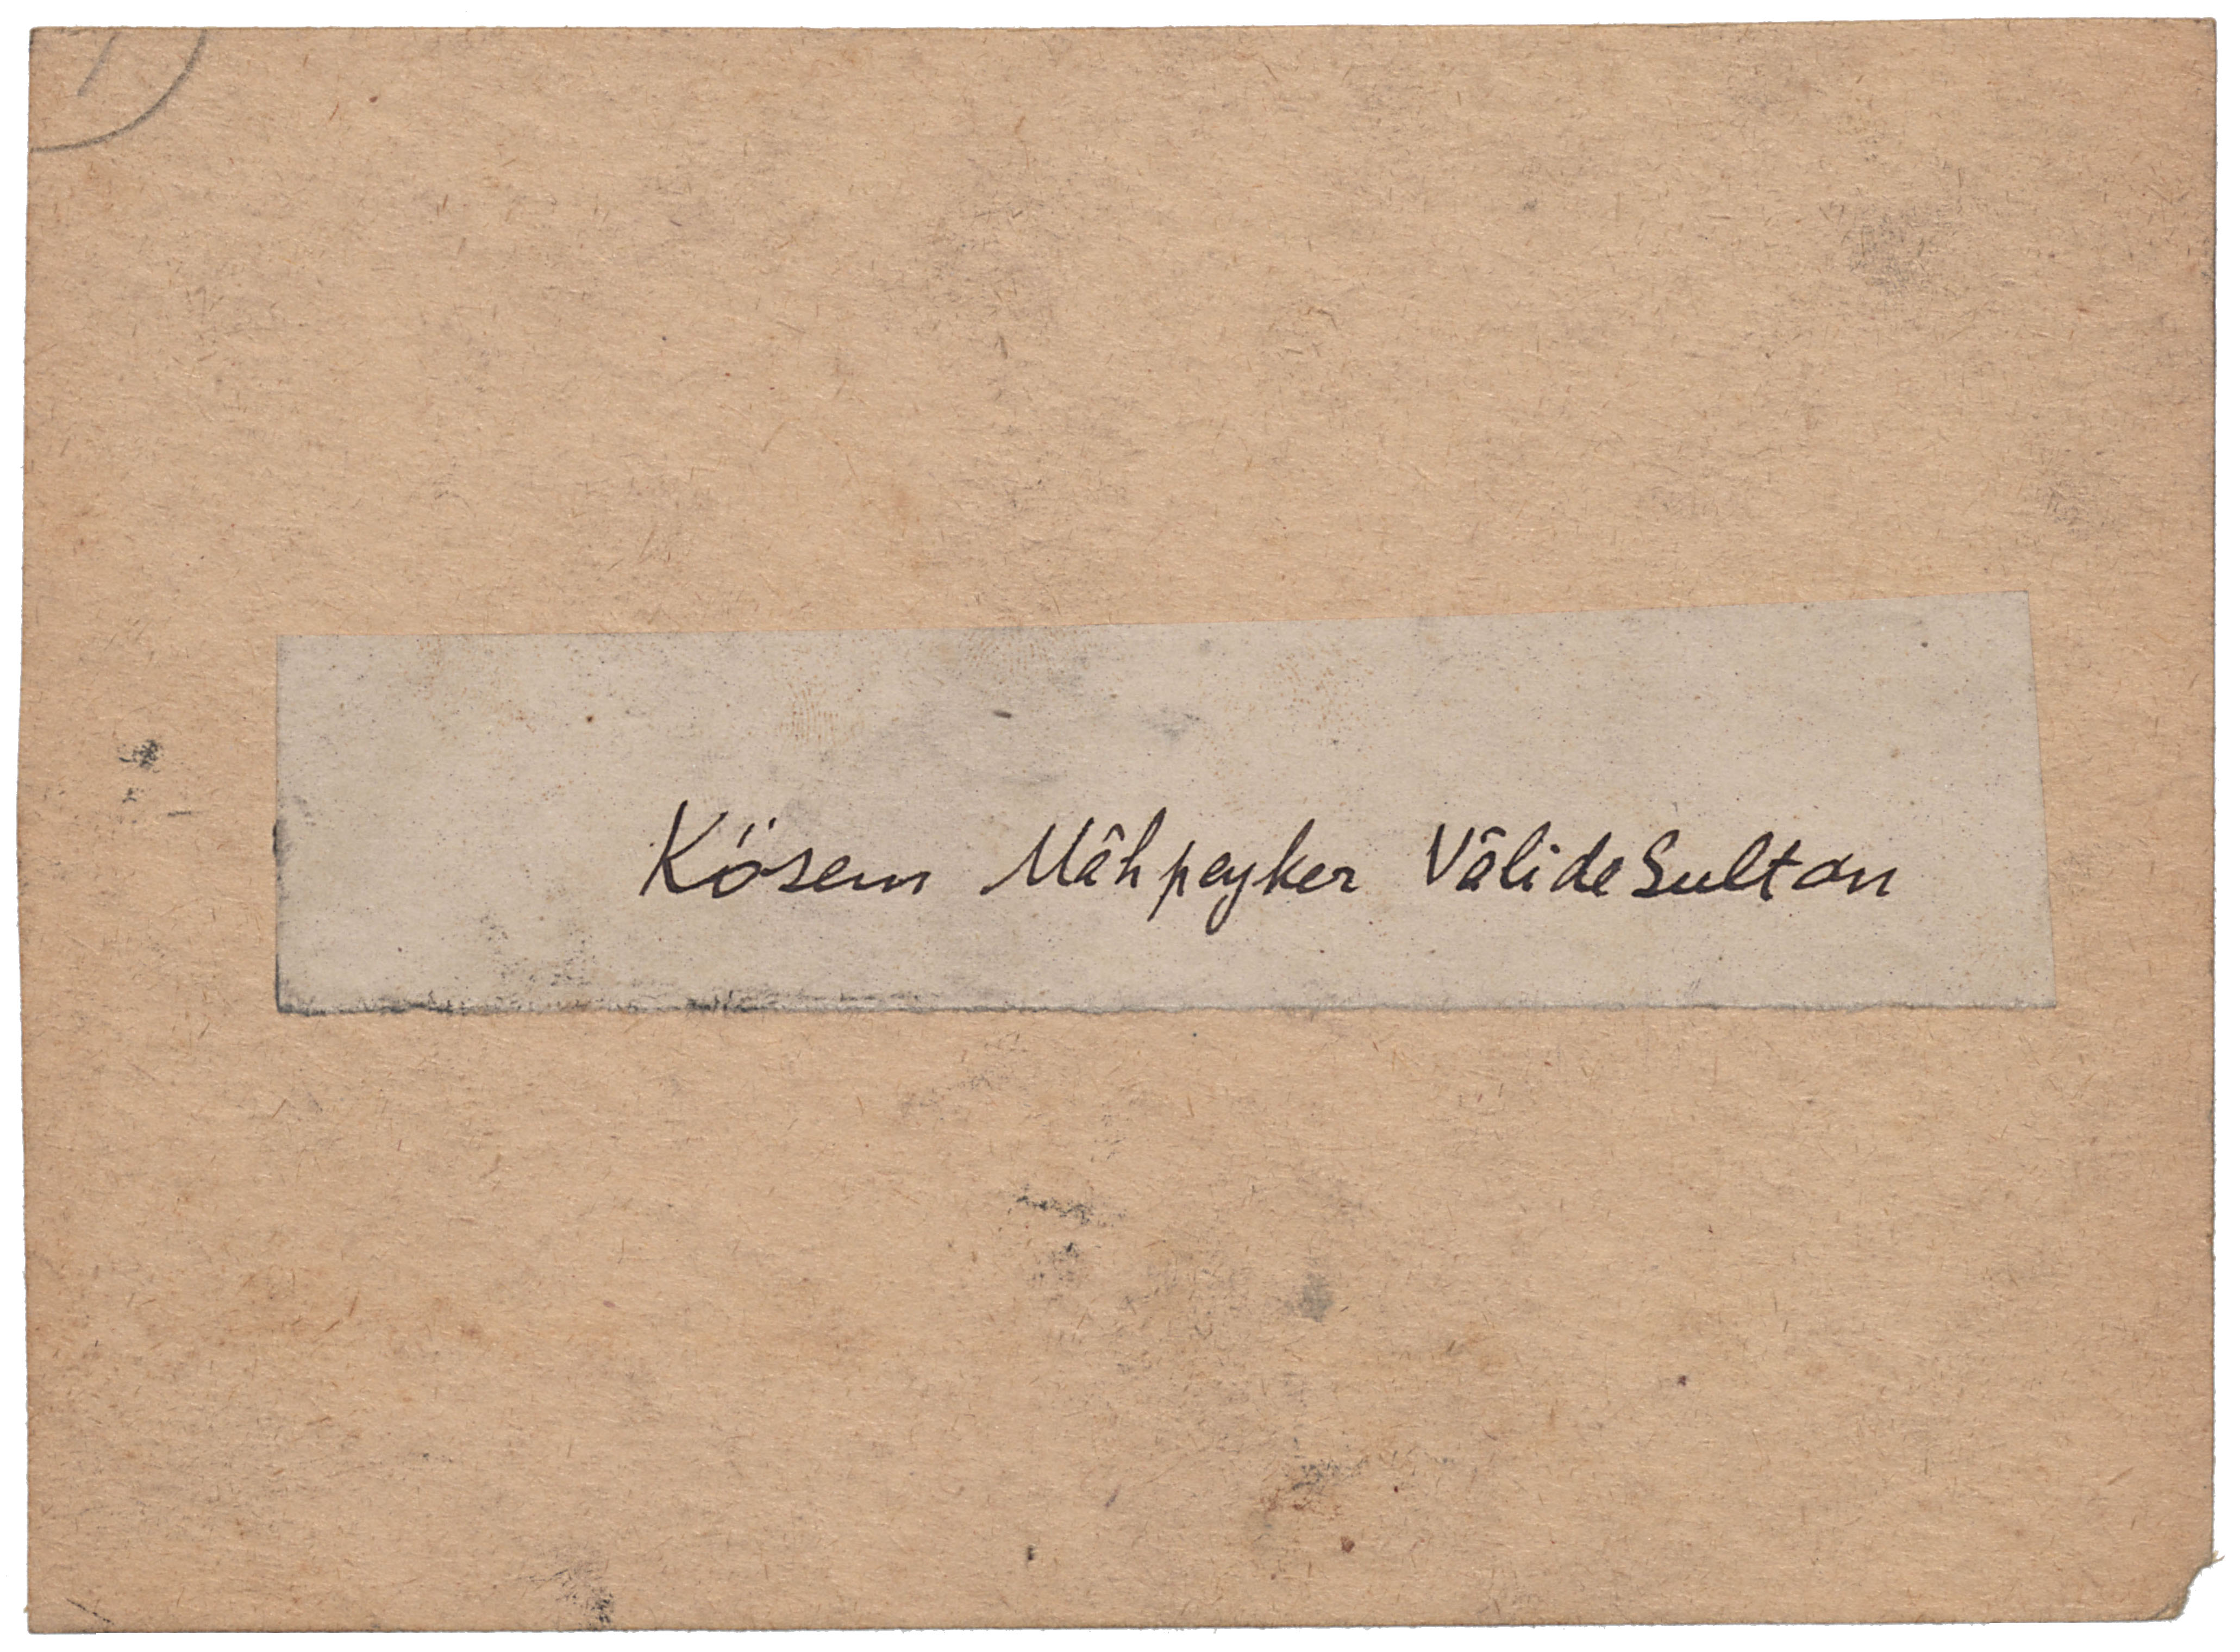 Kösem Mâhpeyker Vâlide Sultan